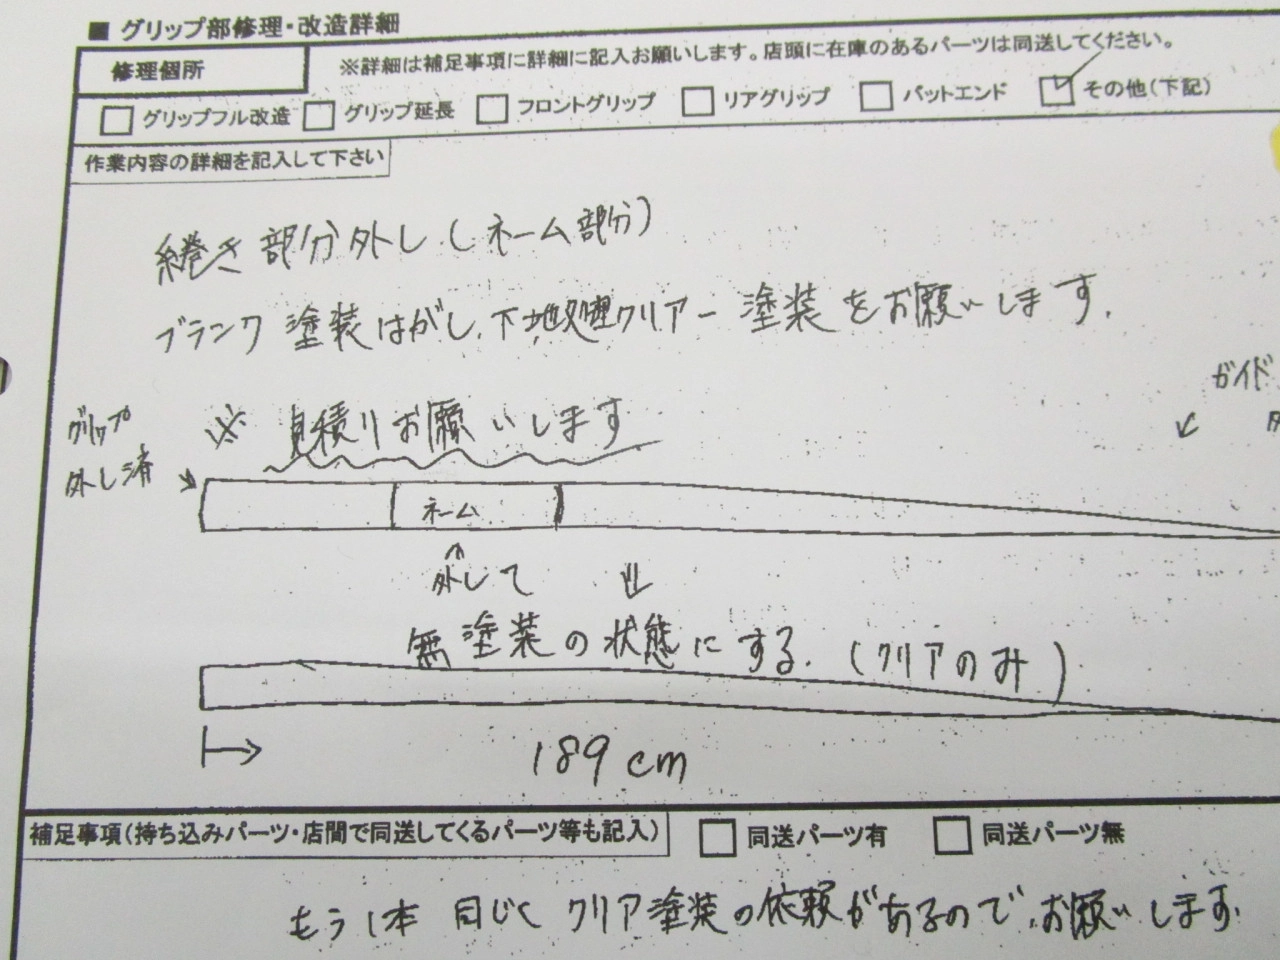 ■ グリップ部修理・改造詳細
修理個所
※詳細は補足事項に詳細に記入お願いします。店頭に在庫のあるパーツは同送してください。
グリップフル改造 グリップ延長 フロントグリップ リアグリップ バットエンド その他(下記)
作業内容の詳細を記入して下さい
糸巻き部分外し(ネーム部分)
ブランク塗装はがし、下地処理クリアー塗装をお願いします.
※ 見積りお願いします
グリップ
外し済
ガイド
ネーム
外して
無塗装の状態にする.(クリアのみ)
189cm
補足事項(持ち込みパーツ・店間で同送してくるパーツ等も記入) 同送パーツ有 同送パーツ無
もう1本 同じく クリア塗装の依頼があるので、お願いします.